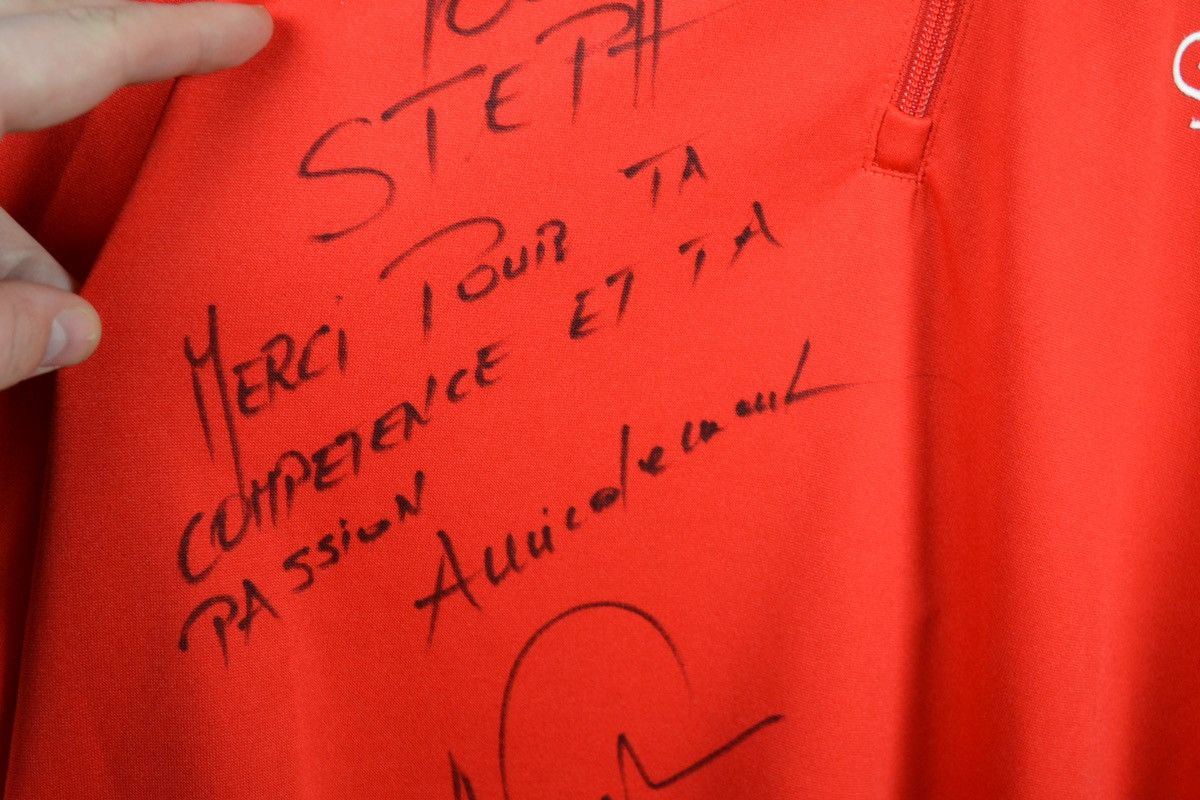 POUR
STEPH
MERCI POUR TA
COMPETENCE ET TA
PASSION
Amicalement